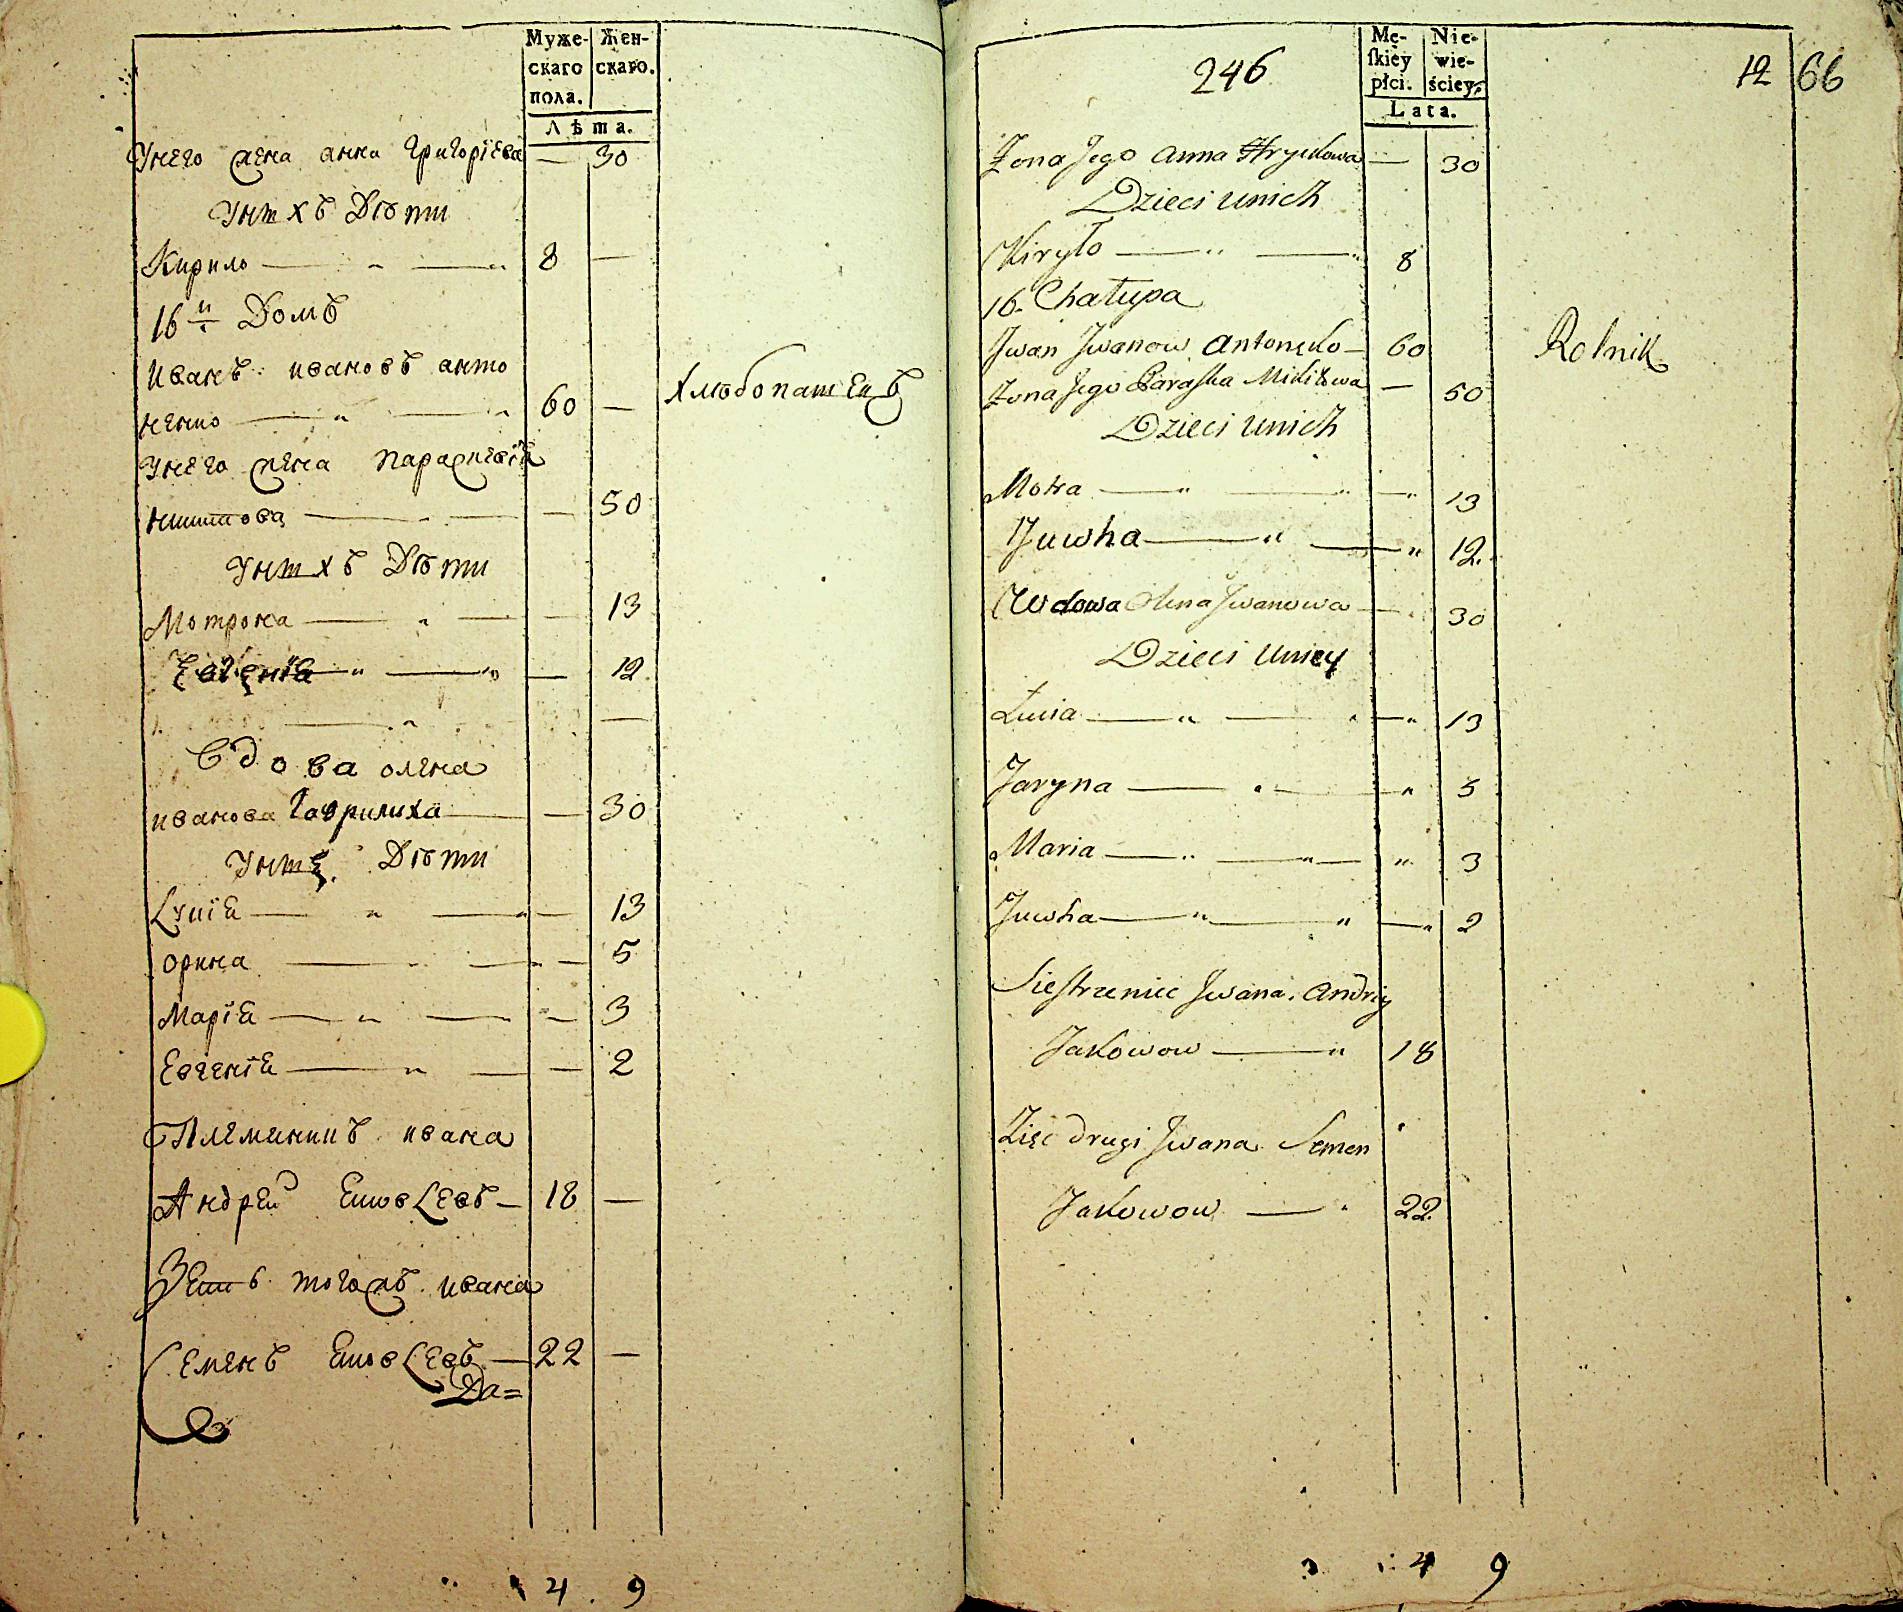 Муже-
скаго
пола.
Жен-
скаго.
Лѣта.
Унего жена анна Григоріева — 30
Унихъ Дѣти
Кирило — „ — „ 8 —
16й Домъ
Иванъ ивановъ анто
ненко — „ — „ 60 —
Хлѣбопашецъ
Унего жена Параскевія
Никитова — „ — — 50
Унихъ Дѣти
Мотрона — „ — — 13
Евгенія „ — „ — 12
— „ —
Вдова олена
иванова Гаврилиха — — 30
Унея Дѣти
Луція — „ — „ — 13
орина — „ — „ — 5
Марія — „ — „ — 3
Евгенія — „ — — 2
Племянникъ ивана
Андрей Яковлевъ — 18 —
Зять тогожъ ивана
Семенъ Яковлевъ — 22 —
Да=
4 . 9
246
Mę-
skiey
płci.
Nie-
wie-
ściey.
Lata.
12 66
Żona Jego Anna Hryckowa — 30
Dzieci unich
Kiryło — „ — „ 8
16. Chałupa
Jwan Jwanow Antonenko — 60
Rolnik
Żona Jego Paraska Mikitowa — 50
Dzieci unich
Motra — „ — „ — „ 13
Juwha — „ — „ 12.
Wdowa Olena Jwanowa — „ 30
Dzieci uniey
Łucia — „ — „ — „ 13
Jaryna — „ — „ 5
Maria — „ — „ — „ 3
Juwha — „ — „ — „ 2
Siestrzeniec Jwana. Andriy
Jakowow — „ 18
Zięć drugi Jwana Semen
Jakowow — „ 22.
4 9